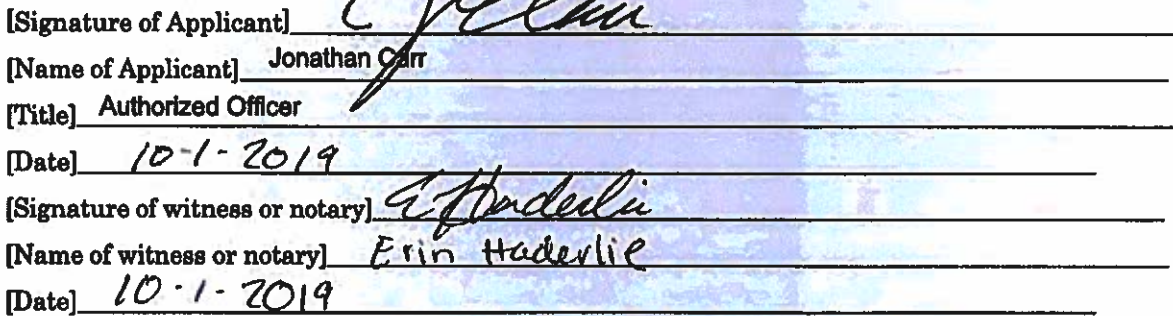 [Signature of Applicant]
[Name of Applicant] Jonathan Carr
[Title] Authorized Officer
[Date] 10-1-2019
[Signature of witness or notary] E Haderlie
[Name of witness or notary] Erin Haderlie
[Date] 10-1-2019